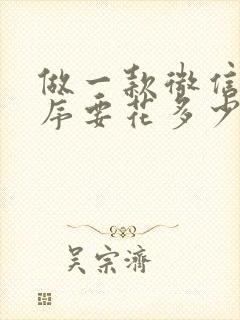 做一款微信
序要花多少
吴宗济